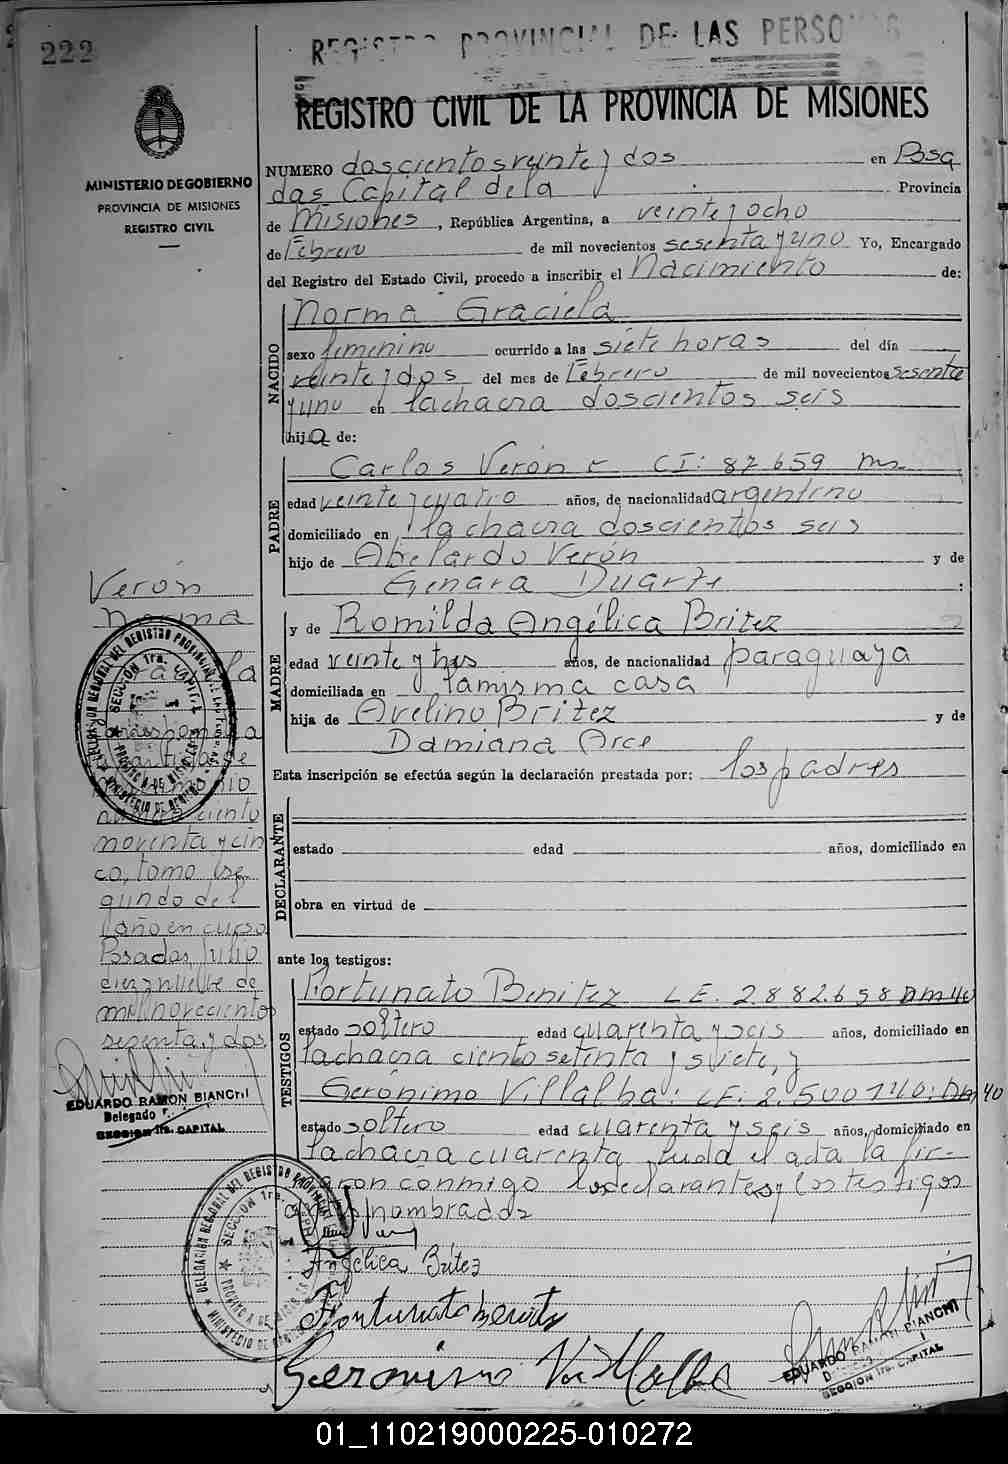 222
REGISTRO PROVINCIAL DE LAS PERSONAS
REGISTRO CIVIL DE LA PROVINCIA DE MISIONES
MINISTERIO DE GOBIERNO
PROVINCIA DE MISIONES
REGISTRO CIVIL
NUMERO doscientosveinte y dos en Posa
das Capital dela Provincia
de Misiones, República Argentina, a veinte y ocho
de Febrero de mil novecientos sesenta y uno Yo, Encargado
del Registro del Estado Civil, procedo a inscribir el Nacimiento de:
NACIDO
Norma Graciela
sexo femenino ocurrido a las siete horas del día
veinte y dos del mes de Febrero de mil novecientos sesenta
y uno en lachacra doscientos seis
hija de:
PADRE
Carlos Verón CI: 87.659
edad veinte y cuatro años, de nacionalidad argentino
domiciliado en lachacra doscientos seis
hijo de Abelardo Verón y de
Genara Duarte :
MADRE
y de Romilda Angélica Britez
edad veinte y tres años, de nacionalidad paraguaya
domiciliada en lamisma casa
hija de Avelino Britez y de
Damiana Arce
Esta inscripción se efectúa según la declaración prestada por: los padres
DECLARANTE
estado edad años, domiciliado en
obra en virtud de
ante los testigos:
TESTIGOS
Fortunato Benitez L.E. 2.882.698 DM 40
estado soltero edad cuarenta y seis años, domiciliado en
lachacra ciento setenta y siete, y
Gerónimo Villalba: LE: 2.500.140: DM 40
estado soltero edad cuarenta y seis años, domiciliado en
lachacra cuarenta, el acta la fir-
maron conmigo los declarantes y los testigos
nombrados
Angélica Britez
Fortunato Benitez
Geronimo Villalba
EDUARDO RAMON BIANCHI
SECCION 1ra. CAPITAL
Verón
Norma
numero ciento
noventa y cin
co, tomo se
gundo del
año en curso
Posadas, Julio
diez y nueve de
mil novecientos
sesenta y dos
EDUARDO RAMON BIANCHI
Delegado
SECCION 1ra. CAPITAL
DELEGACION REGIONAL DEL REGISTRO PROVINCIAL DE LAS PERSONAS
SECCIÓN 1ra. CAPITAL
MINISTERIO DE GOBIERNO
DELEGACION REGIONAL DEL REGISTRO PROVINCIAL
SECCION 1ra.
MINISTERIO DE
01_110219000225-010272